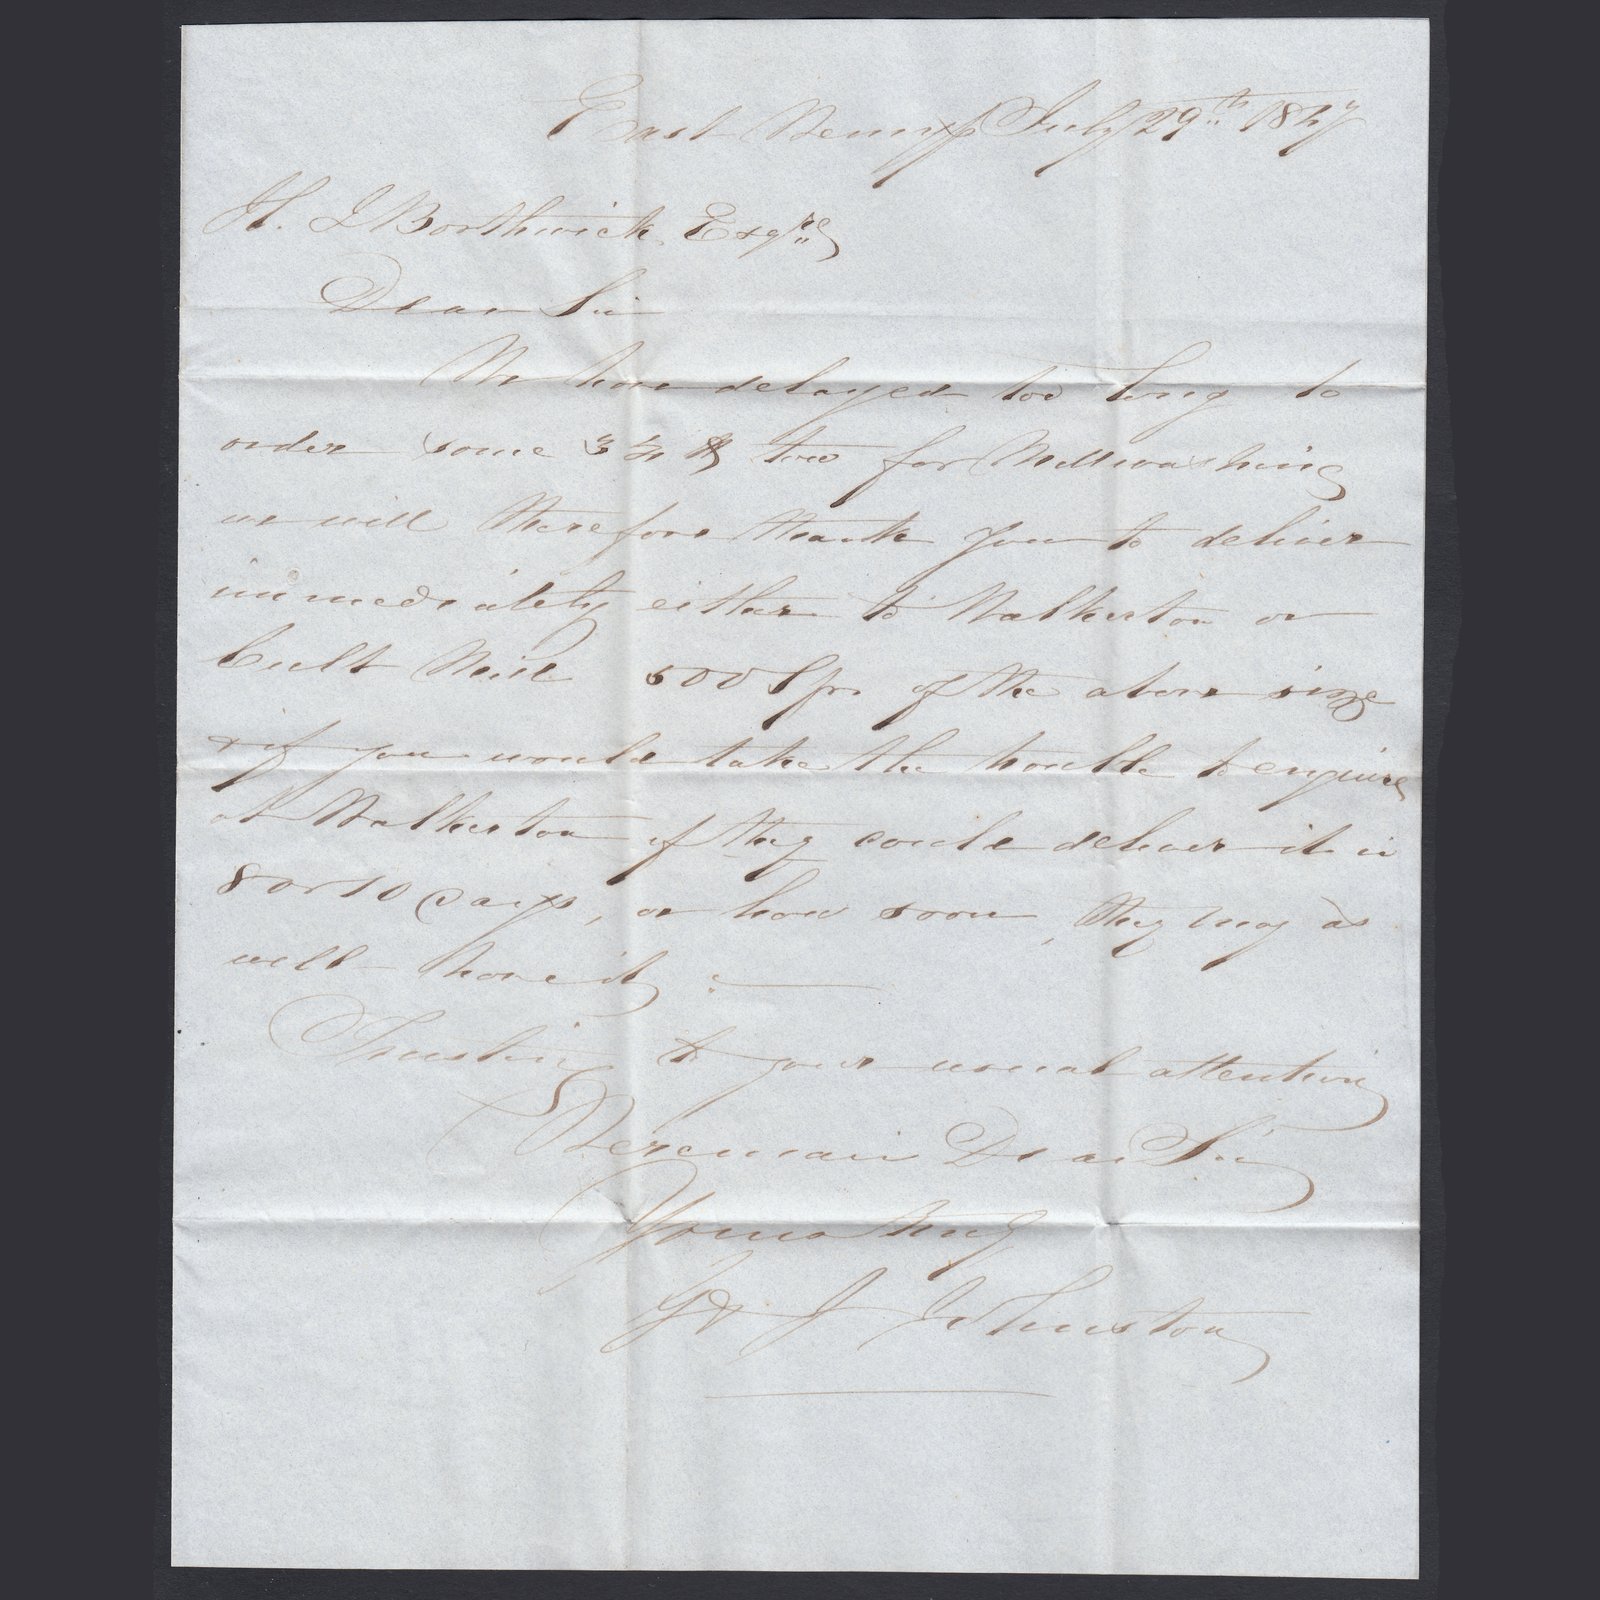 East Wemyss July 29th 1847
H. J Borthwick Esqre
Dear Sir
We have delayed too long to
order some 3 ½ lb tow for Millwashing
we will therefore thank you to deliver
immediately either to Walkerton or
Cult Mill 500 Spn of the above size
& if you would take the trouble to enquire
at Walkerton if they could deliver it in
8 or 10 days, or how soon, they may as
well have it
Trusting to your usual attention
We remain Dear Sir
Yours truly
G & J Johnston